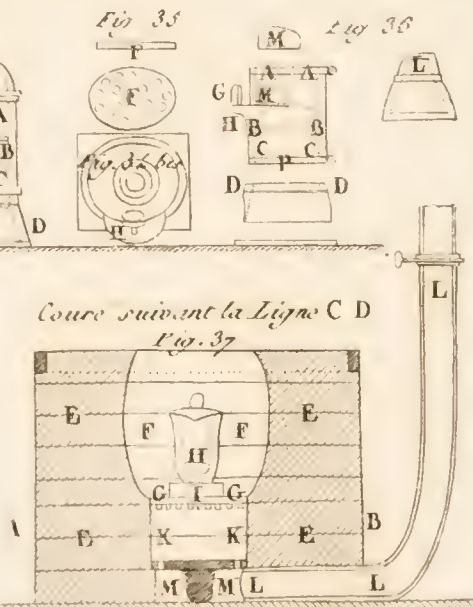 Fig 35
Fig 36
F
M
L
E
A A
G M
A
H B B
B
C C
C
P
D D
D
Fig. 34 bis
H
L
Coupe suivant la Ligne C D
Fig. 37
E E
F F
H
G I G
A E K K E B
M M L L